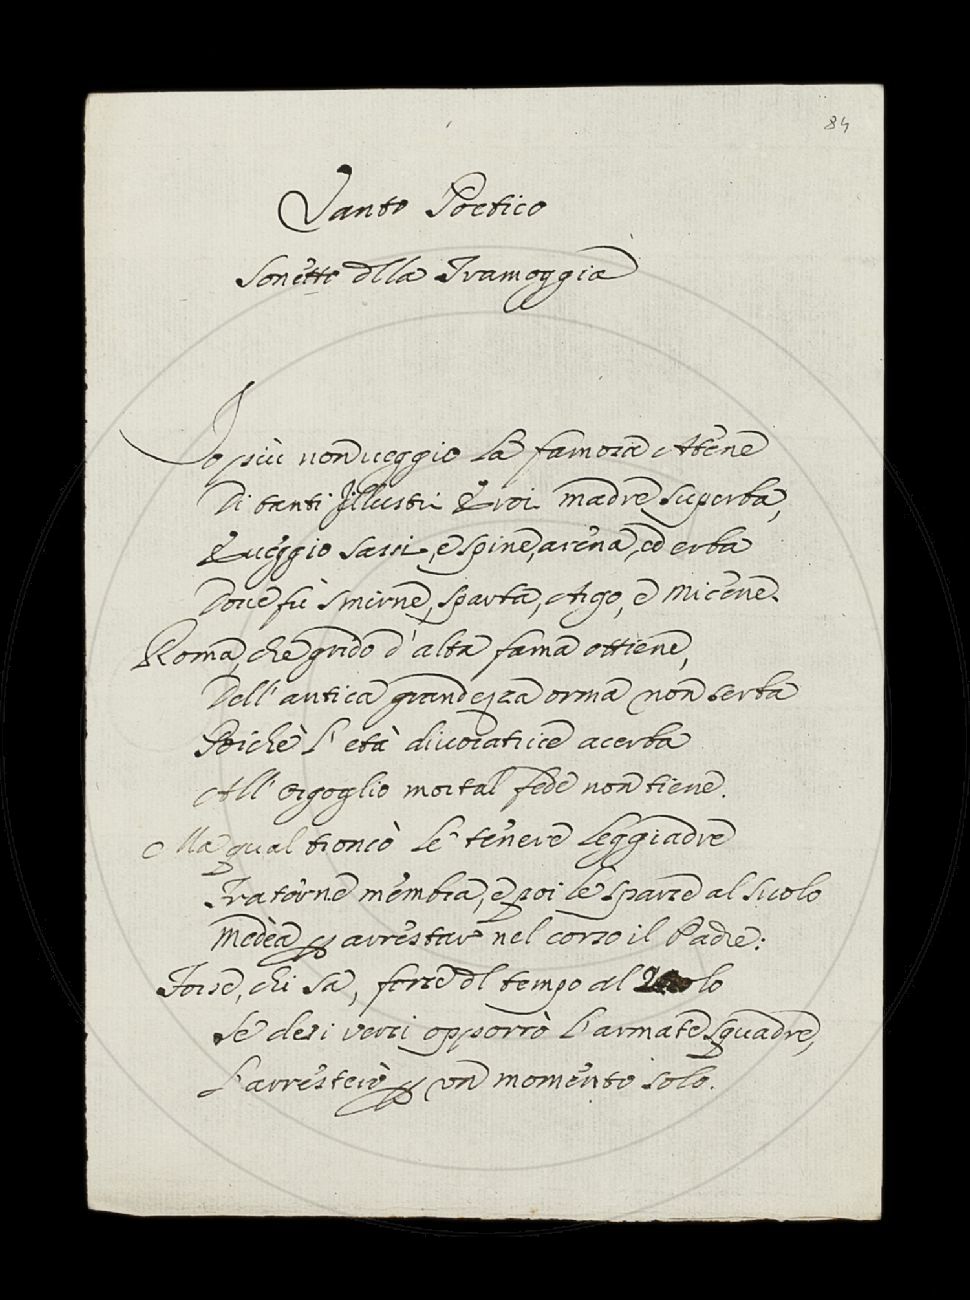 84
Vanto Poetico
Sonetto dlla Tramoggia
Io più non veggio la famosa Atene
Di tanti Illustri Eroi madre superba,
E veggio sassi, e spine, arena, ed erba
Dove fù Smirne, Sparta, Argo, e Micene.
Roma, che grido d'alta fama ottiene,
Dell'antica grandezza orma non serba
Poichè l'età divoratrice acerba
All'orgoglio mortal fede non tiene.
Ma qual troncò le tenere leggiadre
Fraterne membra, e poi le sparse al suolo
Medea p arrestar nel corso il Padre:
Forse, chi sà, forse dl tempo al volo
Se de i versi opporrò l'armate squadre,
L'arresterò p un momento solo.